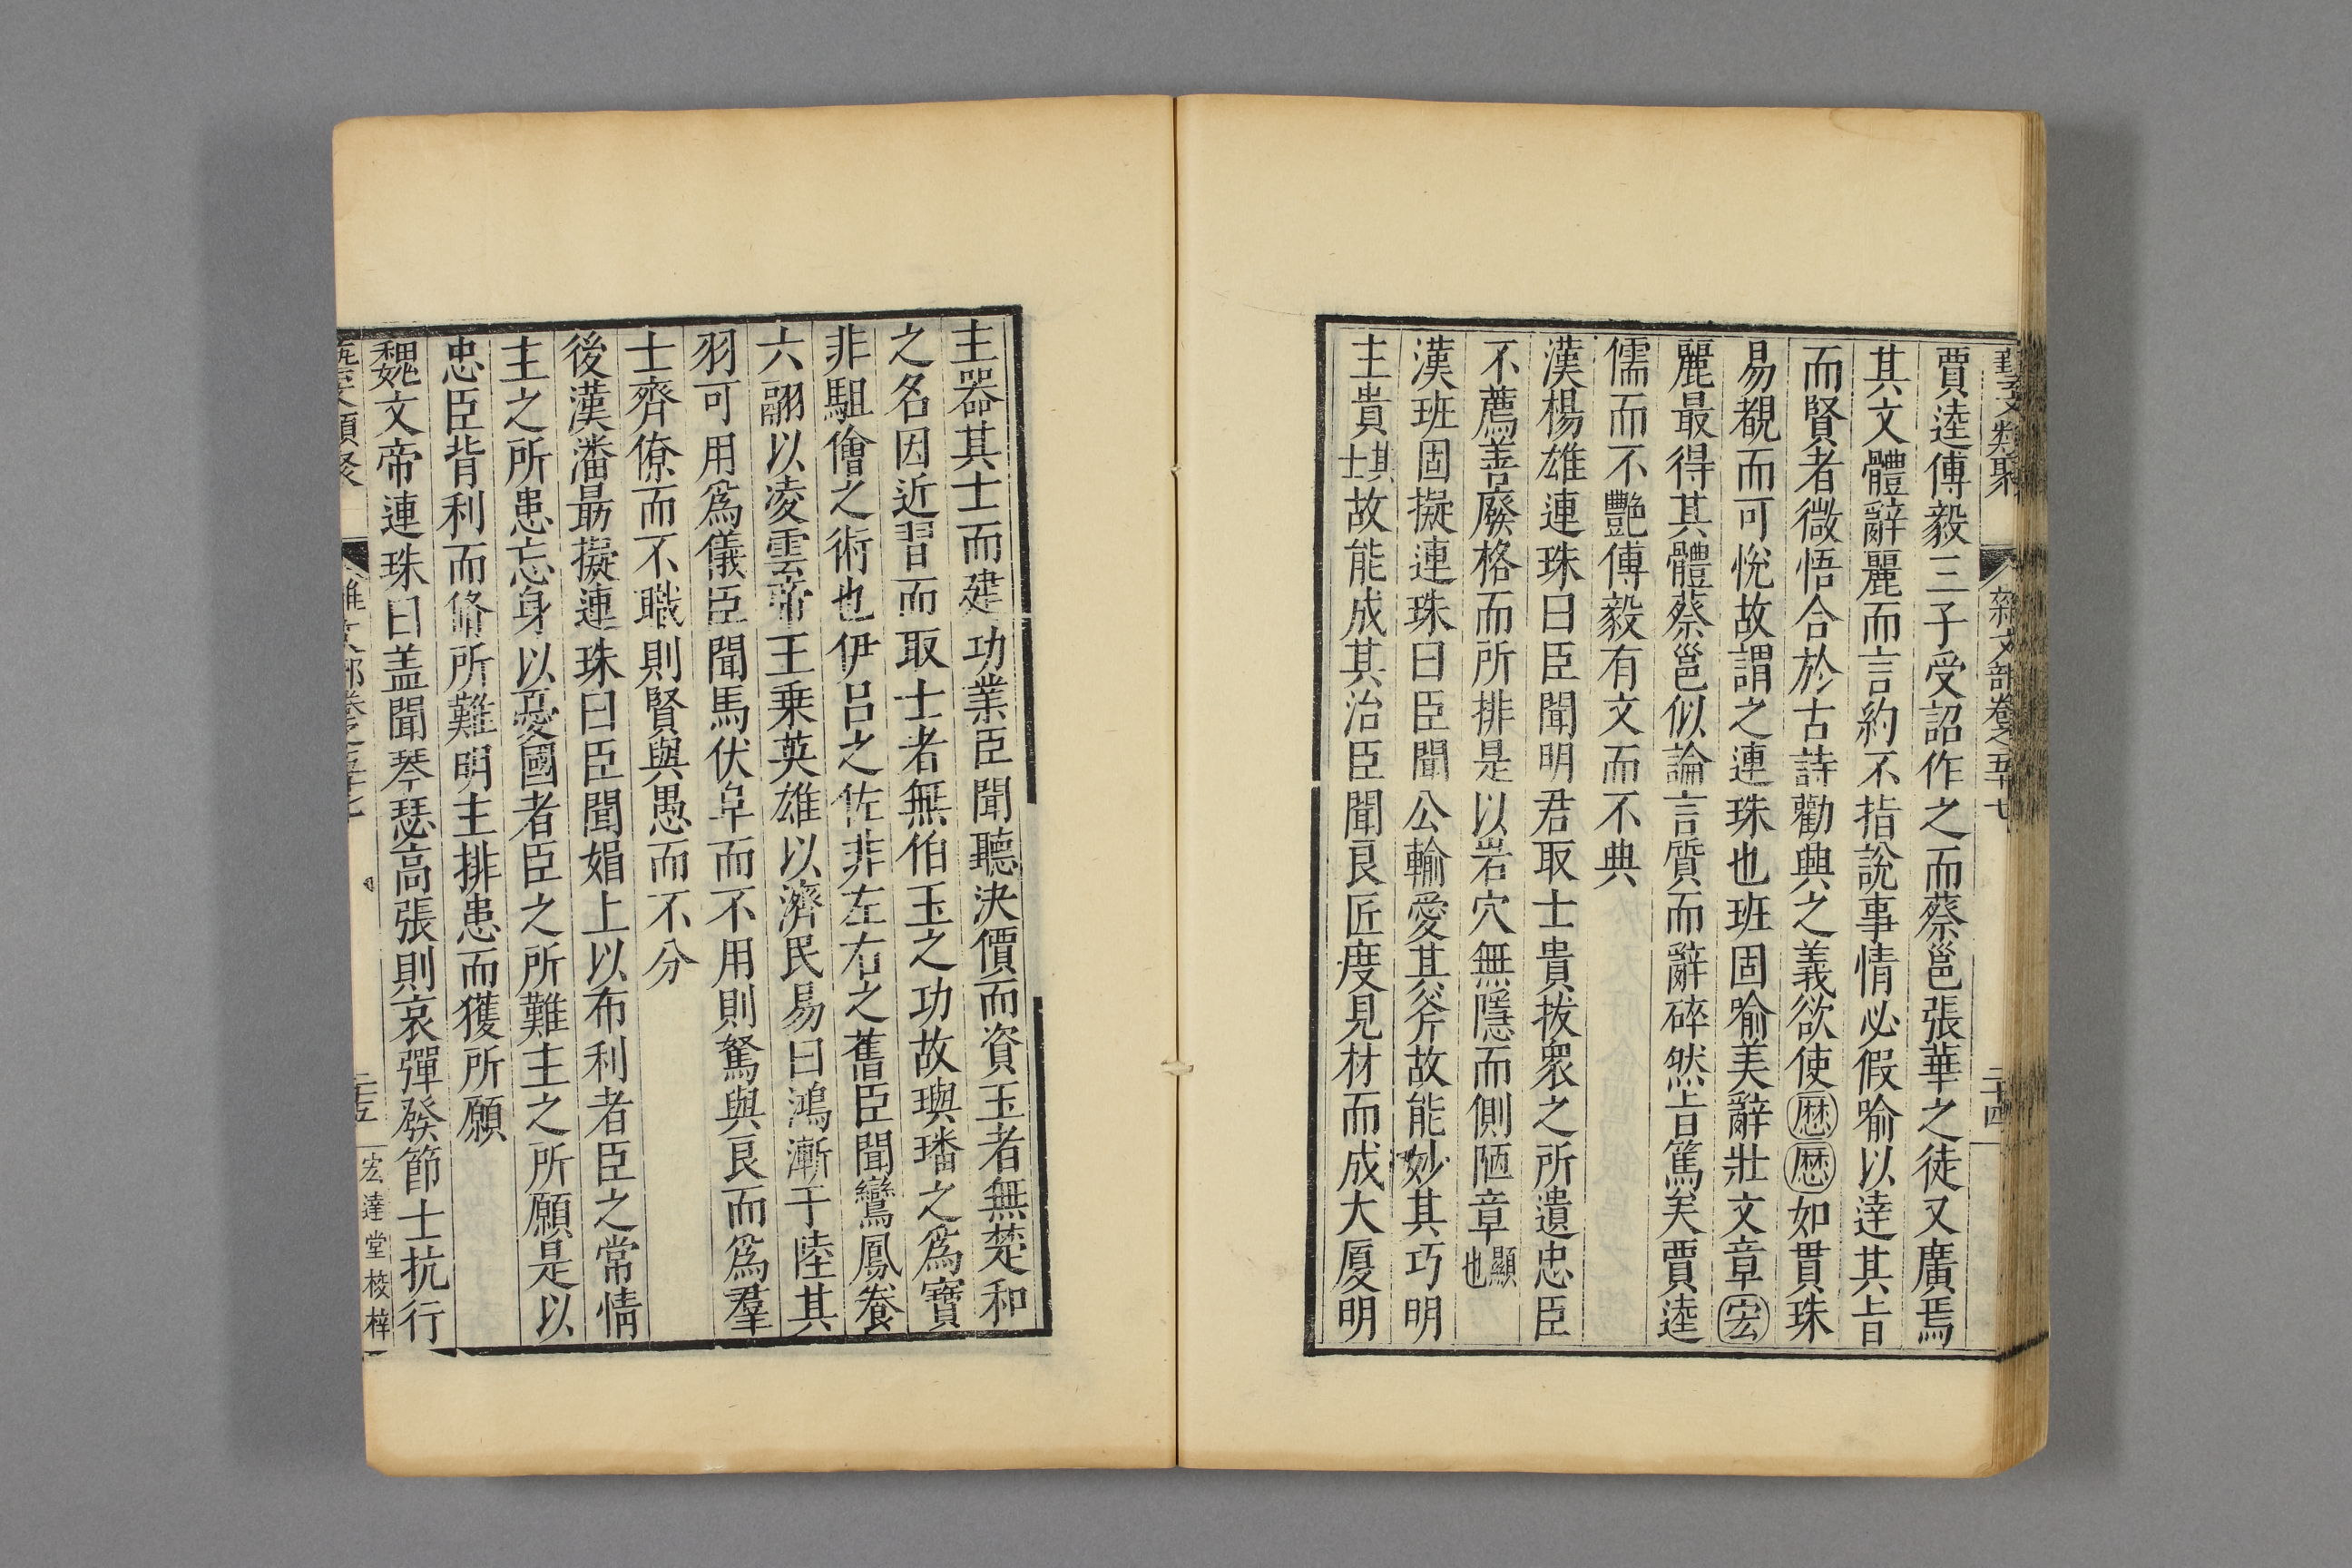 藝文類聚 雜文部卷之五十七 二十四
賈逵傅毅三子受詔作之而蔡邕張華之徒又廣焉
其文體辭麗而言約不指說事情必假喻以達其旨
而賢者微悟合於古詩勸興之義欲使歷歷如貫珠
易覩而可悅故謂之連珠也班固喻美辭壯文章宏
麗最得其體蔡邕似論言質而辭碎然旨篤矣賈逵
儒而不艷傅毅有文而不典
漢楊雄連珠曰臣聞明君取士貴拔衆之所遺忠臣
不薦善廢格而所排是以岩穴無隱而側陋章顯也
漢班固擬連珠曰臣聞公輸愛其斧故能妙其巧明
主貴其士故能成其治臣聞良匠度見材而成大厦明
主器其士而建功業臣聞聽決價而資玉者無楚和
之名因近習而取士者無伯玉之功故璵璠之為寶
非駔儈之術也伊呂之佐非左右之舊臣聞鸞鳳養
六翮以凌雲帝王乗英雄以濟民易曰鴻漸于陸其
羽可用為儀臣聞馬伏皁而不用則駑與良而為羣
士齊僚而不職則賢與愚而不分
後漢潘勗擬連珠曰臣聞媚上以布利者臣之常情
主之所患忘身以憂國者臣之所難主之所願是以
忠臣背利而脩所難明主排患而獲所願
魏文帝連珠曰盖聞琴瑟高張則哀彈發節士抗行
藝文類聚 雜文部卷之五十七 二十五 宏達堂校梓